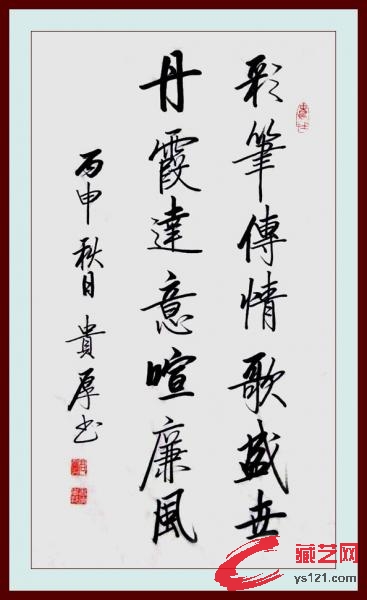 彩筆傳情歌盛世
丹霞達意喧廉風
丙申秋日貴厚书
藏艺网
ys121.com